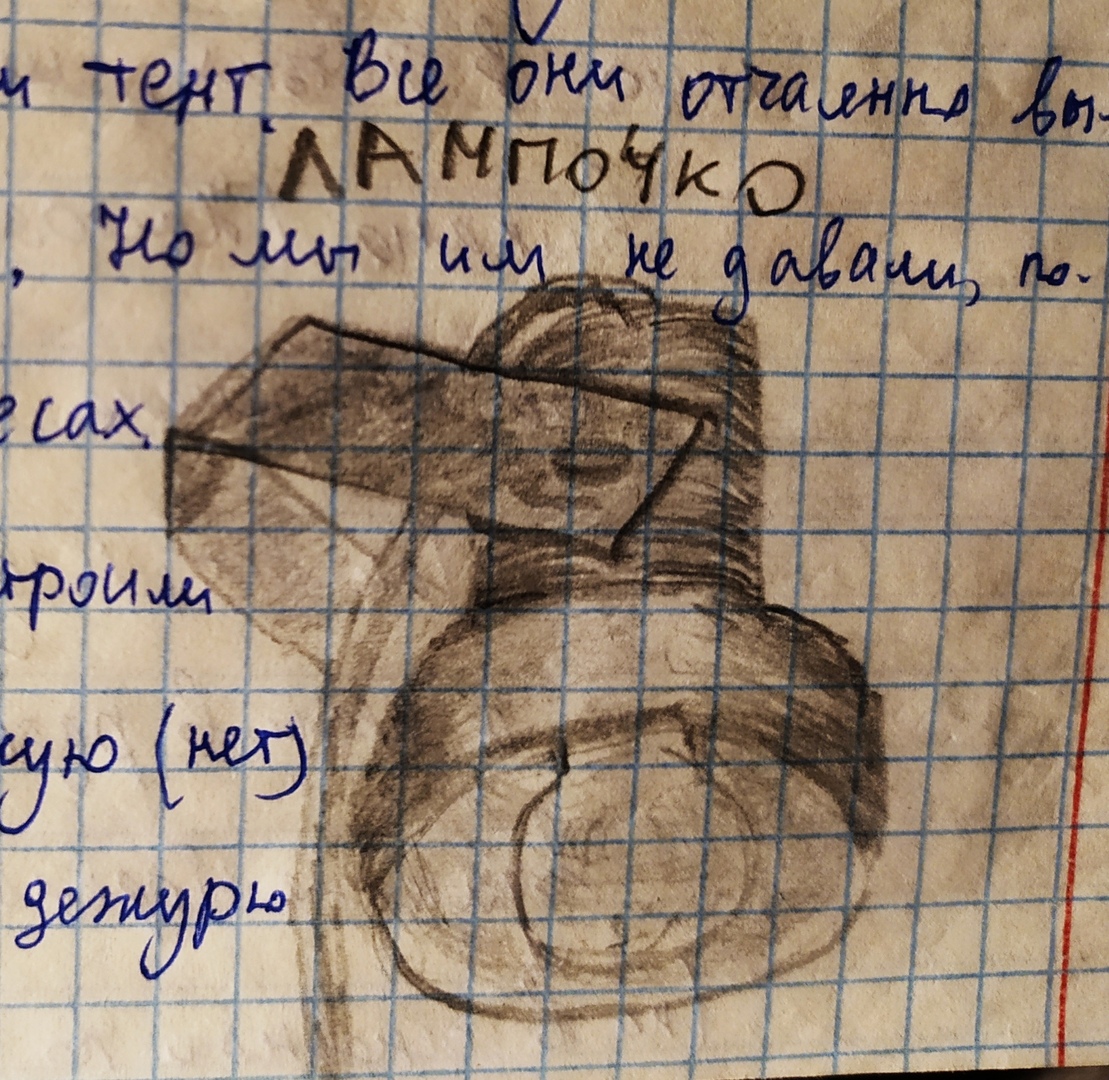 и тент. Все они отчаянно вы-
ЛАМПОЧКО
, Но мы им не давали, по-
есах.
троили
сую (нет)
дежурю